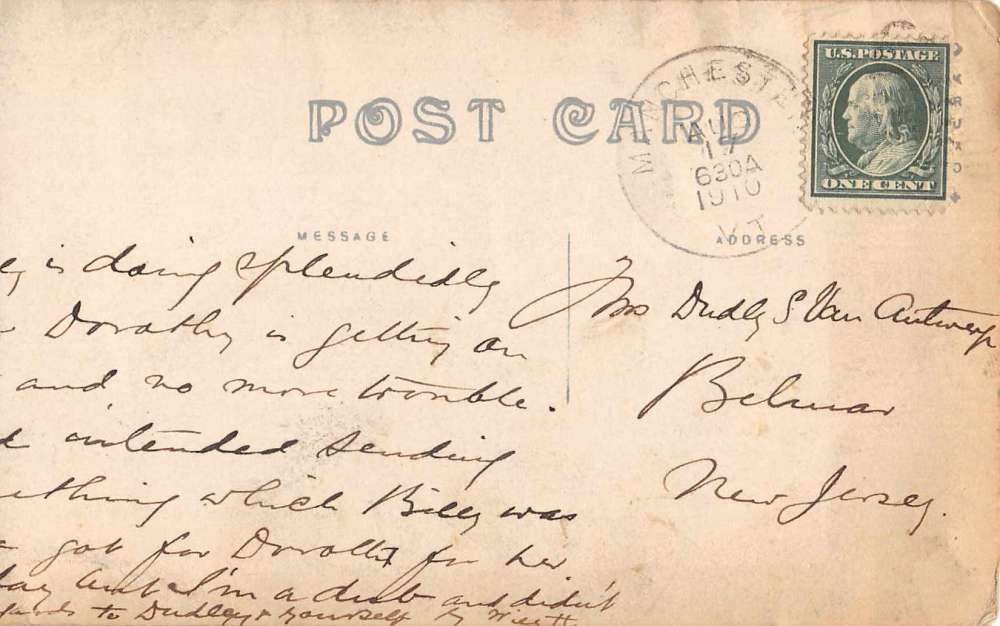 U.S.POSTAGE
ONE CENT
MANCHESTER
AUG
17
630A
1910
VT.
POST CARD
MESSAGE
ADDRESS
is doing splendidly
Dorothy is getting on
and no more trouble.
intended sending
ething which Billy was
got for Dorothy for her
day but I'm a dub and didn't
gards to Dudley & yourself by
Mrs Dudly S Van Antwerp
Belmar
New Jersey.